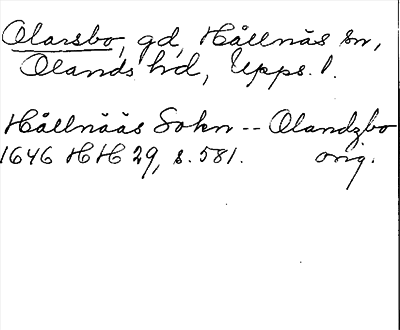 Olarsbo, gd, Hållnäs sn,
Olands hd, Upps. l.
Hållnääs Sokn -- Olandzbo
1646 HH 29, s. 581. orig.